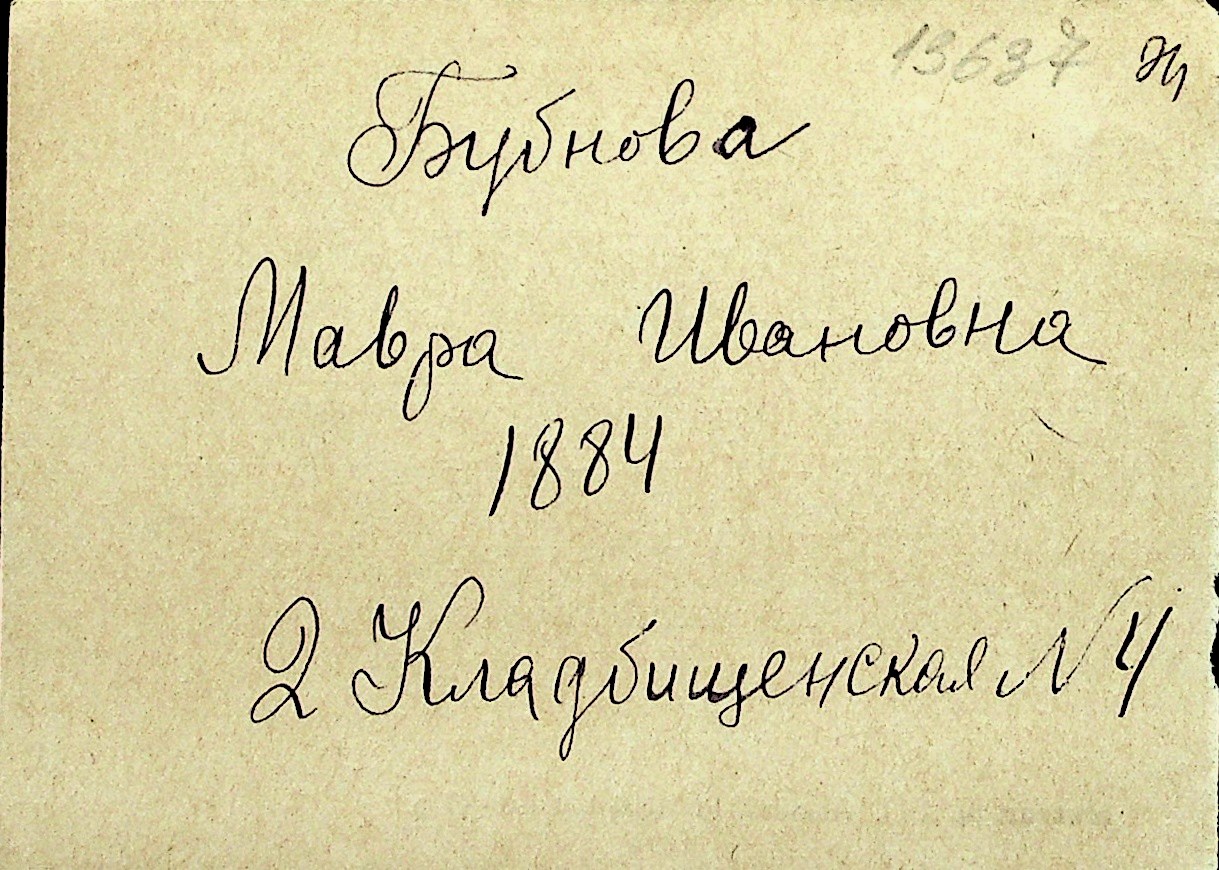 13637
Бубнова
Мавра Ивановна
1884
2 Кладбищенская N 4